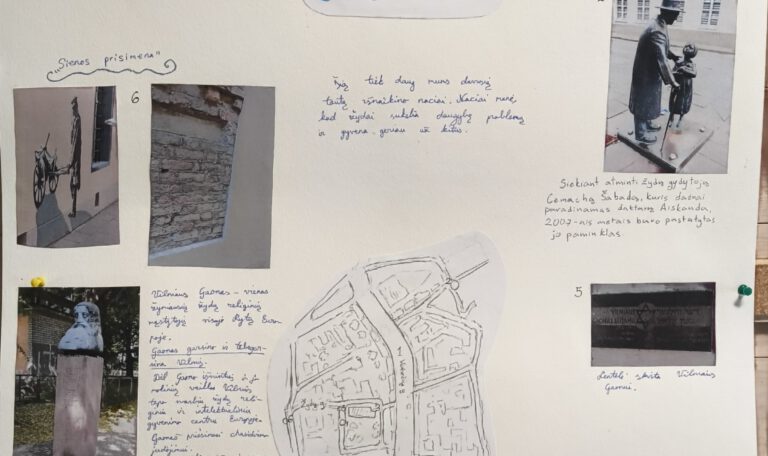 „Sienos prisimena"
6
Šią tiek daug mums davusią
tautą išnaikino naciai. Naciai manė,
kad žydai sukelia daugybę problemų
ir gyvena geriau už kitus.
Siekiant atminti žydų gydytojo
Cemacho Šabado, kuris dažnai
pavadinamas daktaru Aiskauda,
2007-ais metais buvo pastatytas
jo paminklas.
5
Lentelė skirta Vilniaus
Gaonui.
Vilniaus Gaonas – vienas
žymiausių žydų religinių
mąstytojų visoje Rytų Euro-
poje.
Gaonas garsino ir tebegar-
sina Vilnių.
Dėl Gaono išminties ir jo
mokinių veiklos Vilnius
tapo svarbiu žydų reli-
ginio ir intelektualinio
gyvenimo centru Europoje.
Gaonas priešinosi chasidizmo
judėjimui.